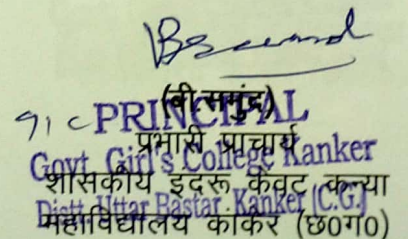 (बी समुंद्र)
PRINCIPAL
प्रभारी प्राचार्य
Govt. Girl's College Kanker
शासकीय इंदरू केंवट कन्या
Distt. Uttar Bastar, Kanker (C.G.)
महाविद्यालय कांकेर (छ०ग०)